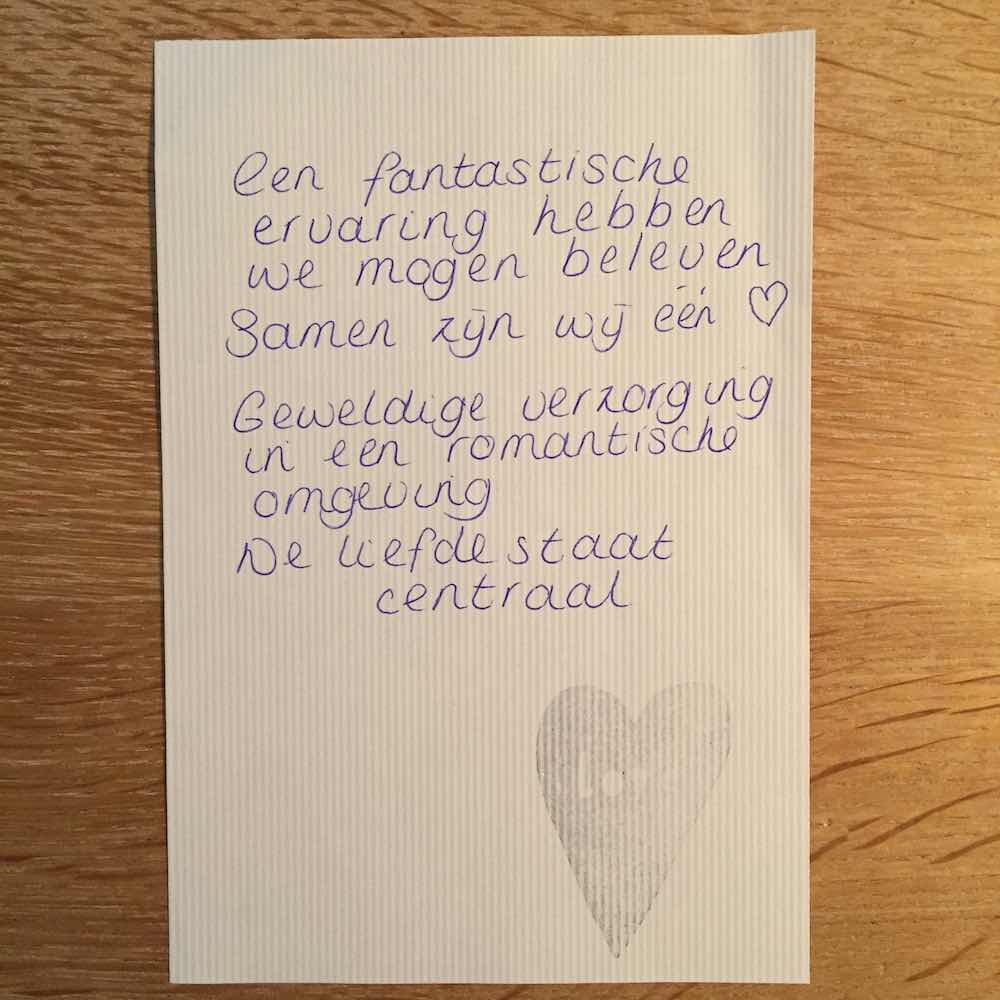 Een fantastische
ervaring hebben
we mogen beleven
Samen zijn wij één ♡
Geweldige verzorging
in een romantische
omgeving
De liefde staat
centraal
love